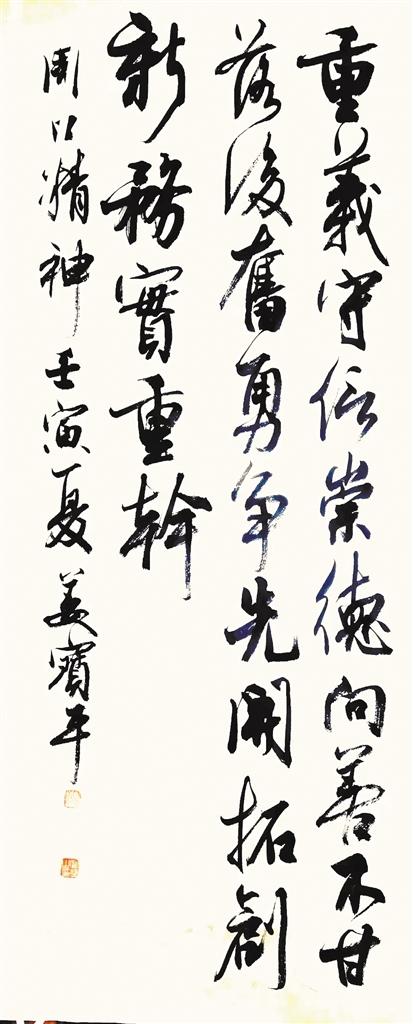 重義守信崇德向善不甘
落後奮勇争先開拓創
新務實重幹
周口精神壬寅夏姜寶平